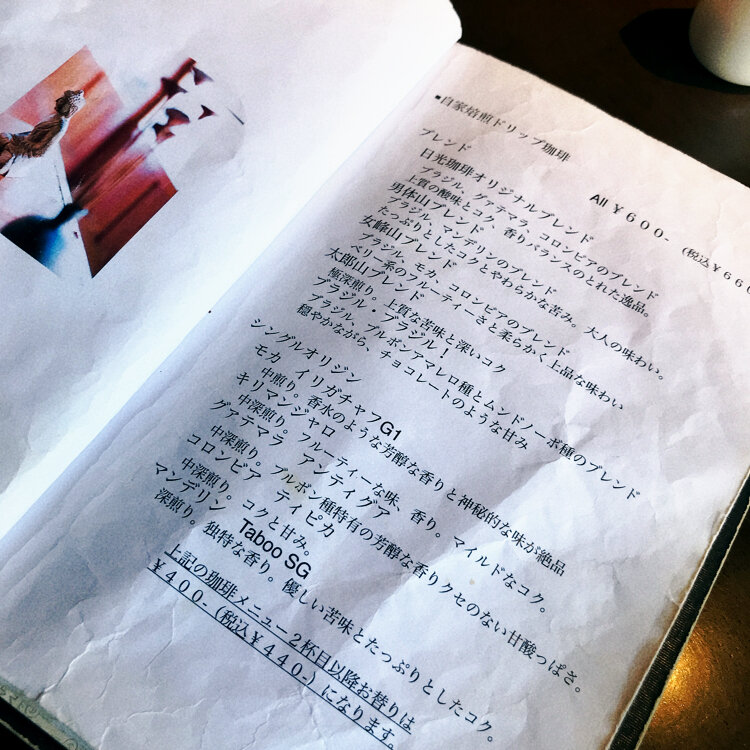 ■自家焙煎ドリップ珈琲
All ¥600- (税込¥660
ブレンド
日光珈琲オリジナルブレンド
ブラジル、グァテマラ、コロンビアのブレンド
上質の酸味とコク、香りバランスのとれた逸品。
男体山ブレンド
ブラジル、マンデリンのブレンド
たっぷりとしたコクとやわらかな苦み。大人の味わい。
女峰山ブレンド
ブラジル、モカ、コロンビアのブレンド
ベリー系のフルーティーさと柔らかく上品な味わい
太郎山ブレンド
極深煎り。上質な苦味と深いコク
ブラジル・ブラジル！
ブラジル、ブルボンアマレロ種とムンドノーボ種のブレンド
穏やかながら、チョコレートのような甘み
シングルオリジン
モカ イリガチャフG1
中煎り。香水のような芳醇な香りと神秘的な味が絶品
キリマンジャロ
中深煎り。フルーティーな味、香り。マイルドなコク。
グァテマラ アンティグア
中深煎り。ブルボン種特有の芳醇な香りクセのない甘酸っぱさ。
コロンビア ティピカ
中深煎り。コクと甘み。
マンデリン Taboo SG
深煎り。独特な香り。優しい苦味とたっぷりとしたコク。
上記の珈琲メニュー２杯目以降お替りは
¥400-(税込¥440-)になります。